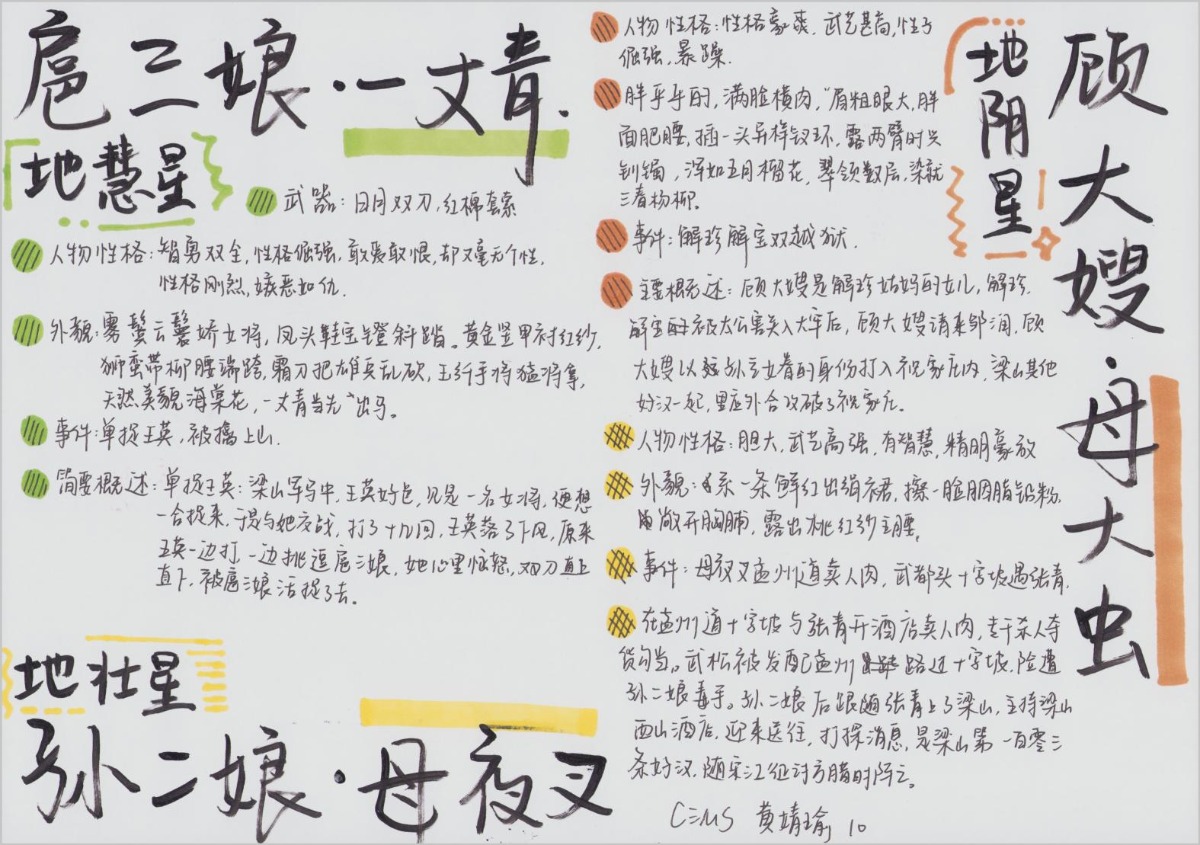 扈三娘·一丈青.
地慧星
武器：日月双刀,红棉套索
人物性格：智勇双全,性格倔强,敢爱敢恨,却又毫无个性,
性格刚烈,嫉恶如仇.
外貌：雾鬓云鬟娇女将,凤头鞋宝镫斜踏。黄金坚甲衬红纱,
狮蛮带柳腰端跨,霜刀把雄兵乱砍,玉纤手将猛将拿,
天然美貌海棠花,一丈青当先"出马。
事件：单捉王英,被擒上山.
简要概述：单捉王英：梁山军马中,王英好色,见是一名女将,便想
一合捉来,于是与她交战,打了十几回,王英落了下风,原来
王英一边打,一边挑逗扈三娘,她心里恼怒,双刀直上
直下,被扈三娘活捉了去。
地壮星
孙二娘·母夜叉
顾大嫂·母大虫
地阴星
人物性格：性格豪爽,武艺甚高,性子
倔强,暴躁.
胖乎乎的,满脸横肉,"眉粗眼大,胖
面肥腰,插一头异样钗环,露两臂时兴
钏镯,浑如五月榴花,翠领数层,染就
三春杨柳.
事件：解珍解宝双越狱.
主要概述：顾大嫂是解珍姑妈的女儿,解珍.
解宝被太公害关入大牢后,顾大嫂请来邹润,顾
大嫂以孙立女眷的身份打入祝家庄内,梁山其他
好汉一起,里应外合攻破了祝家庄。
人物性格：胆大,武艺高强,有智慧,精明豪放
外貌：系一条鲜红出绢裙,擦一脸胭脂铅粉,
敞开胸脯,露出桃红纱主腰,
事件：母夜叉孟州道卖人肉,武都头十字坡遇张青.
在孟州道十字坡与张青开酒店卖人肉,专干杀人夺
货勾当。武松被发配孟州路过十字坡,险遭
孙二娘毒手。孙二娘后跟随张青上了梁山,主持梁山
西山酒店,迎来送往,打探消息,是梁山第一百零三
条好汉,随宋江征讨方腊时阵亡。
黄婧瑜 10